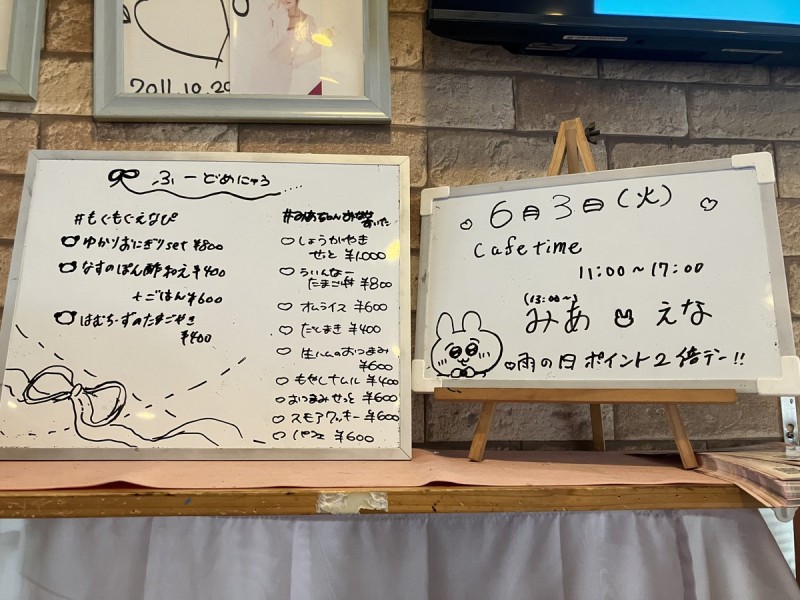 2011.10.29
ふーどめにゅう
#もぐもぐえなぴ
ゆかりおにぎりset ¥800
なすのぽん酢和え ¥400
+ごはん ¥600
はむちーずのたまごやき
¥400
#みあちゃん
しょうがやき
せっと ¥1,000
ういんなー
たまご丼 ¥800
オムライス ¥600
だしまき ¥400
生ハムのおつまみ
¥600
もやしナムル ¥400
おつまみせっと ¥600
スモアクッキー ¥600
パフェ ¥600
6月3日(火)
Cafe time
11:00~17:00
(13:00~)
みあ えな
雨の日ポイント2倍デー!!